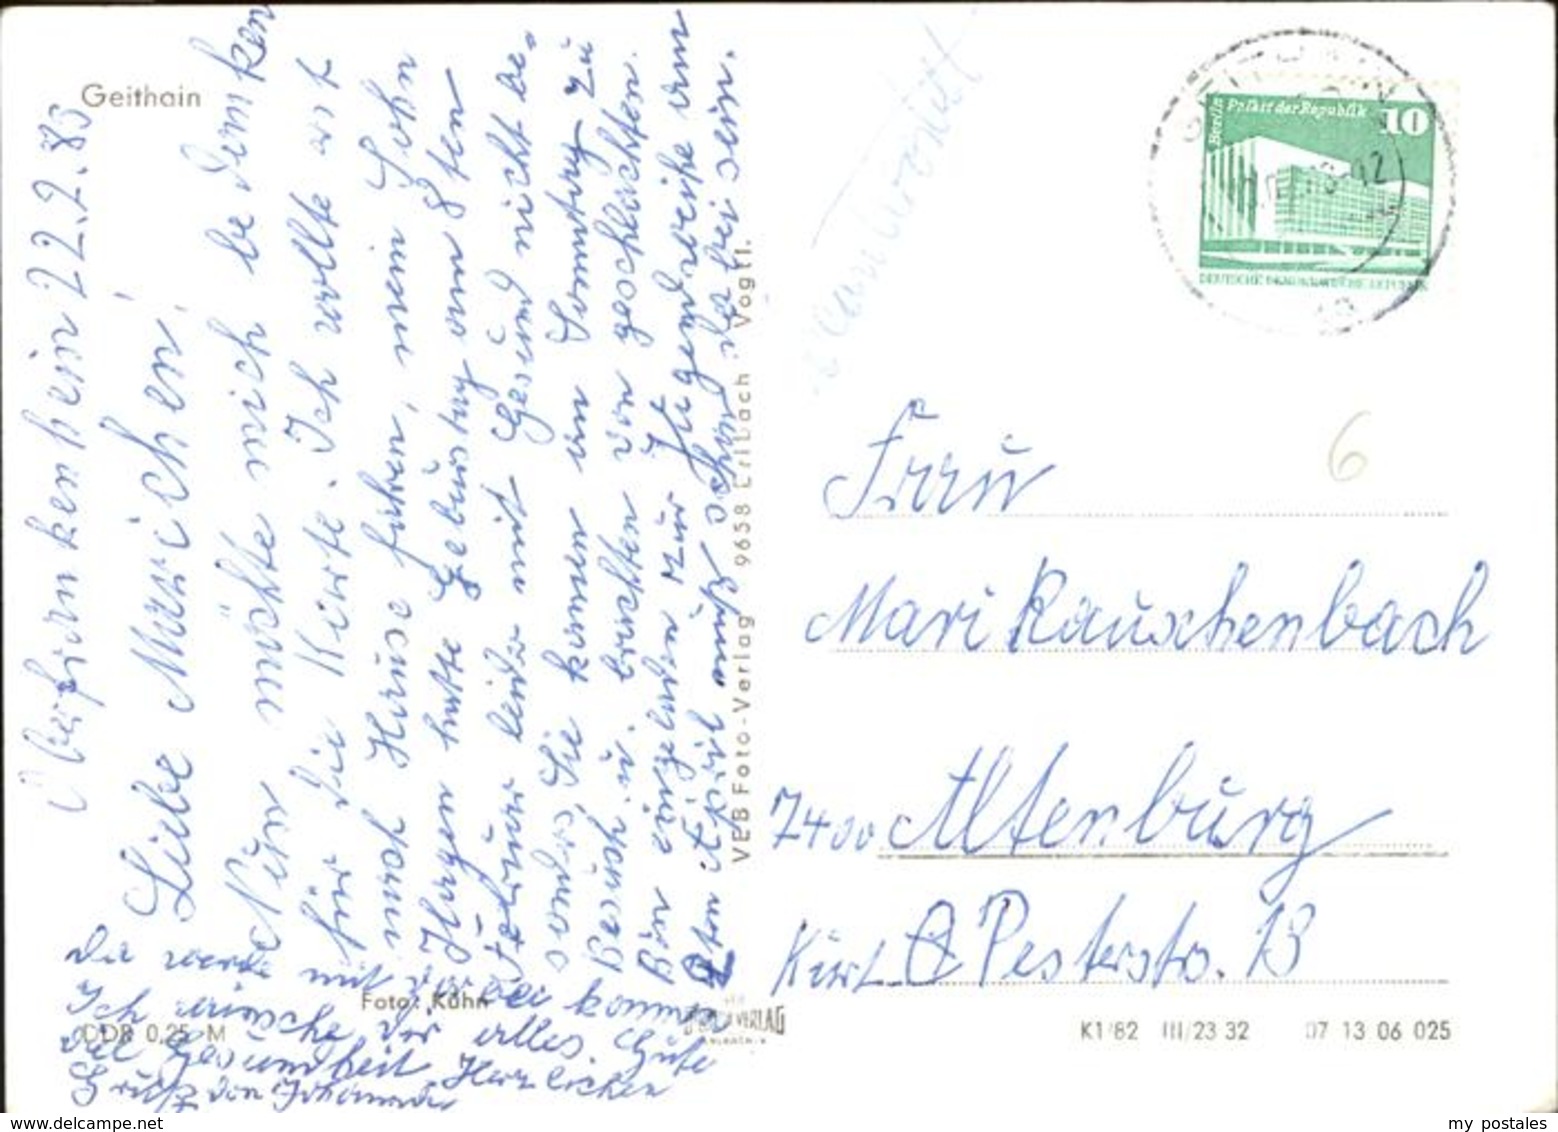 Geithain
Oberfrankenhein 22.2.83
Liebe Mariechen!
Nur möchte mich bedanken
für die Karte. Ich wollte erst
nach Hause führen, mein Sohn
Hagen hatte Geburstag am 8ten
Februar leider mit Gesund nicht be-
sonders, Sie kamen am Sonntag zu
Besuch u. brachten von geschlachten.
Bin eingeladen zur Jugendweihe am
2ten April muß schon dabei sein.
Da werde mit vorbei kommen
Ich wünsche dir alles Gute
viel Gesundheit Herzlichen
Gruß von Johanna
Foto: Kühn
DDR 0,25 M
VEB Foto-Verlag 9658 Erlbach Vogtl.
VERLAG
Berlin Palast der Republik
10
DEUTSCHE DEMOKRATISCHE REPUBLIK
6
Frau
Mari Rauschenbach
7400 Altenburg
Kurt Pesterstr. 13
K1/82 III/23 32 07 13 06 025
www.delcampe.net
my postales